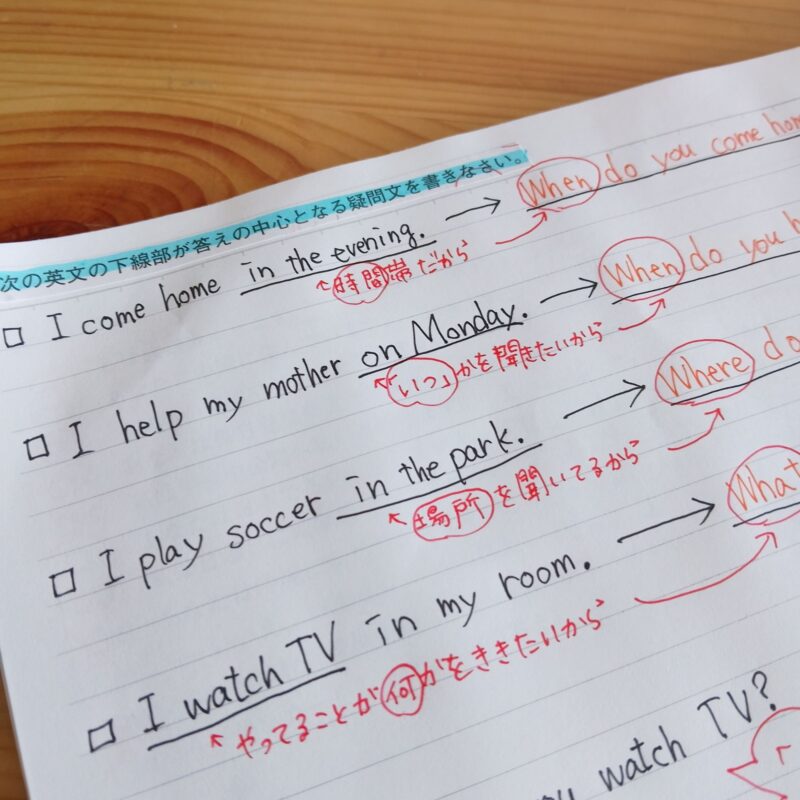 次の英文の下線部が答えの中心となる疑問文を書きなさい。
□ I come home in the evening. → When do you come home
↖時間帯だから
□ I help my mother on Monday. → When do you h
↖「いつ」かを聞きたいから
□ I play soccer in the park. → Where do
↖場所を聞いてるから
□ I watch TV in my room. → What
↖やってることが何かをききたいから
you watch TV?
「